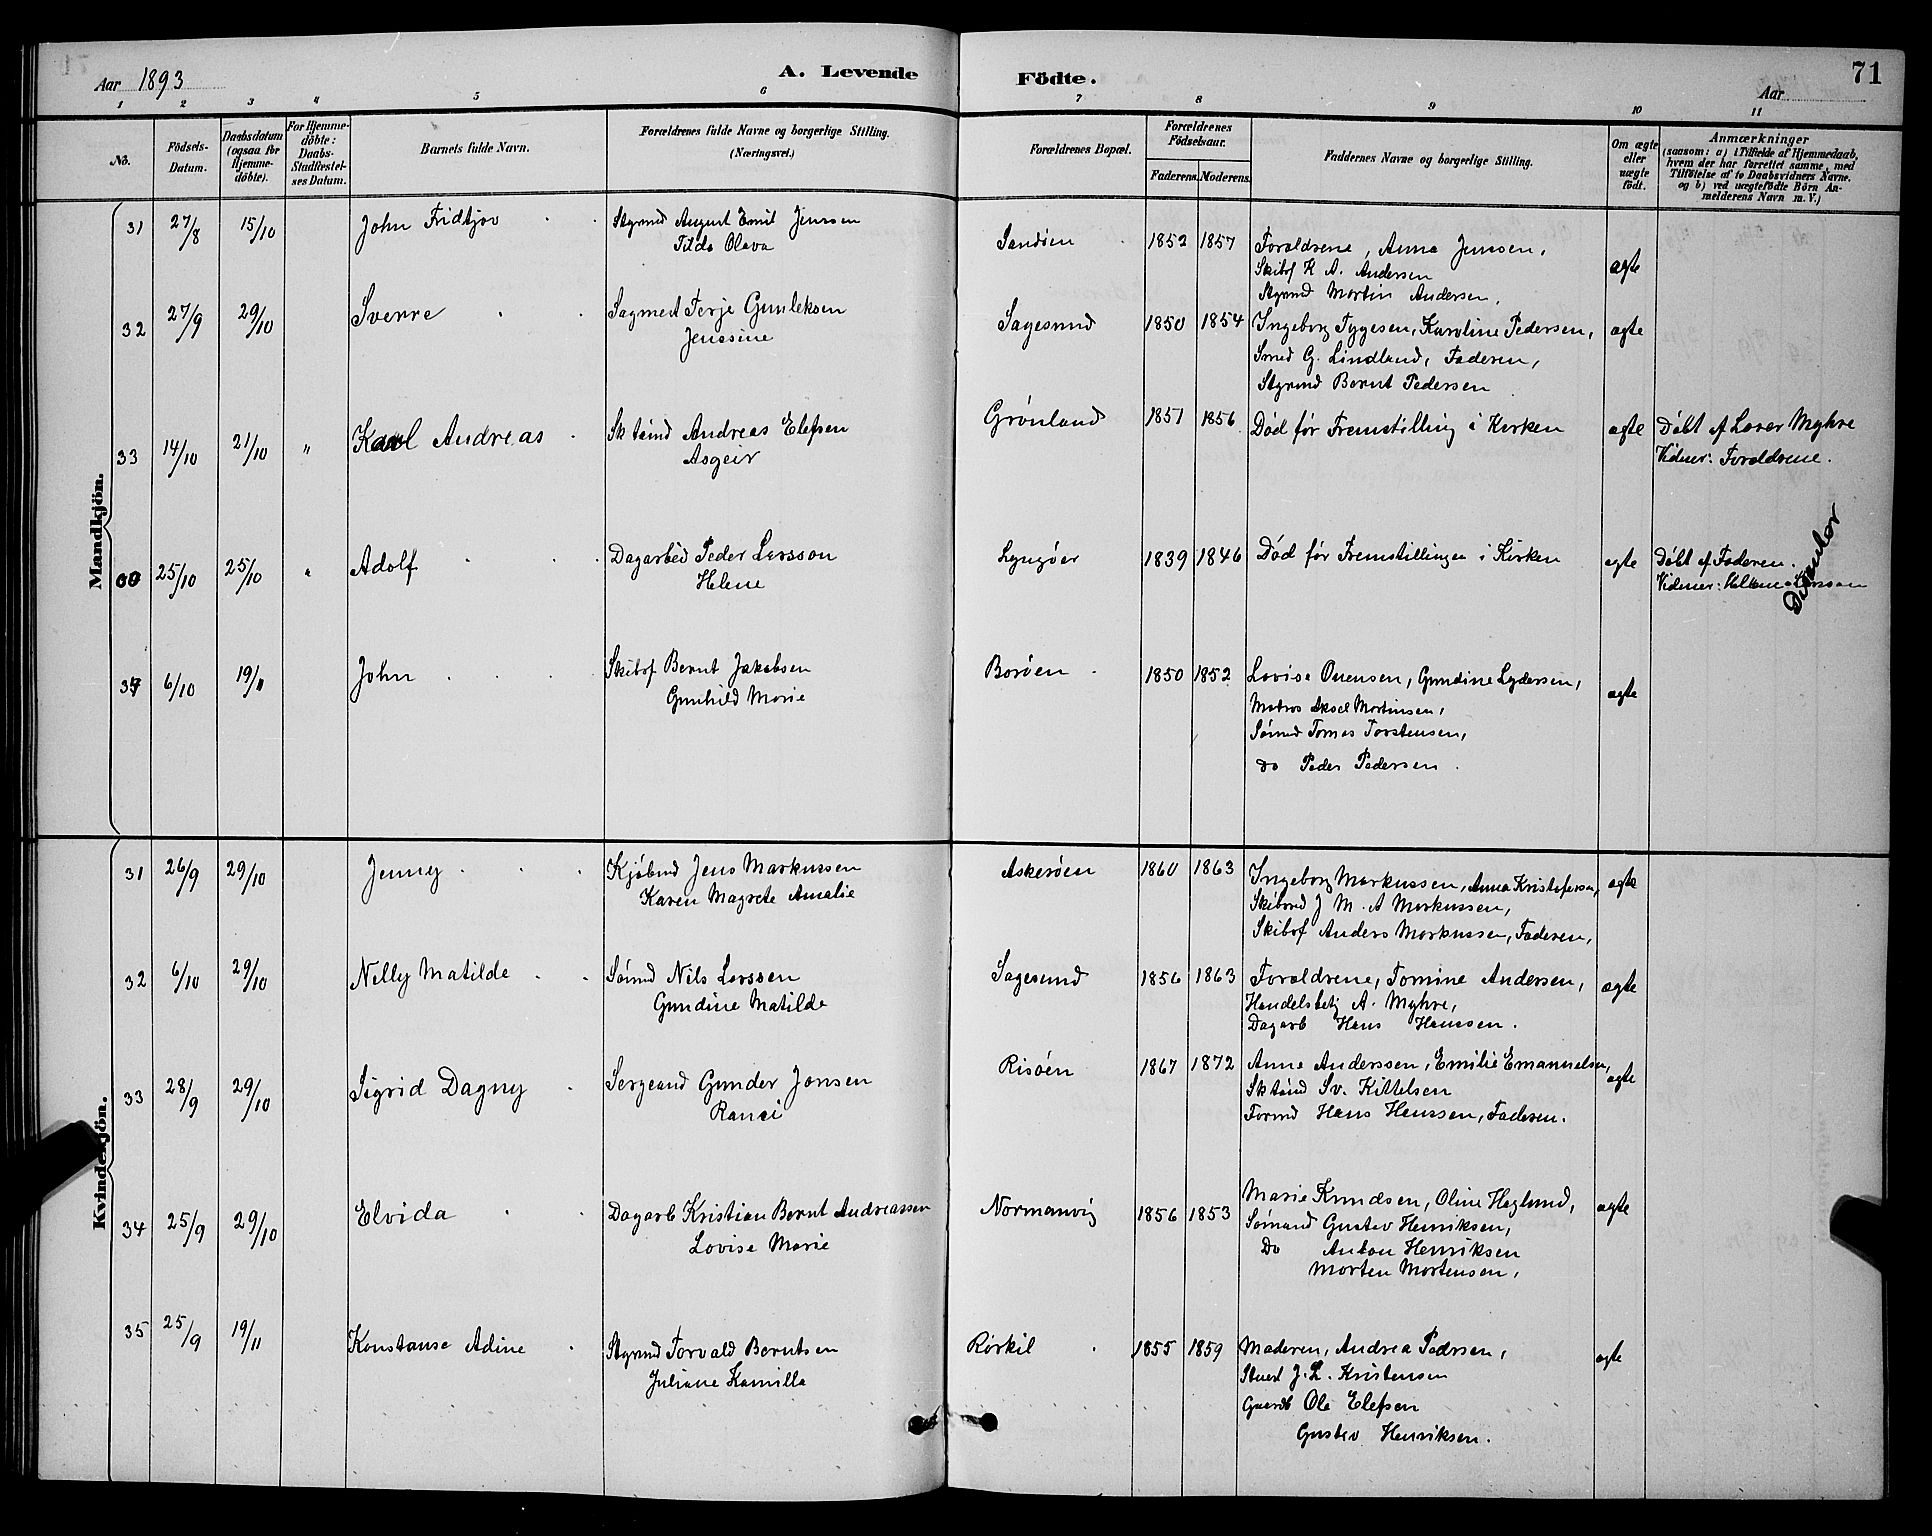 Aar 1893
A. Levende
Födte.
Aar
71
1 2 3 4 5 6 7 8 9 10 11
No.
Födsels-
Datum.
Daabsdatum
(ogsaa for
Hjemme-
döbte).
For Hjemme-
döbte:
Daabs-
Stadfæstel-
ses Datum.
Barnets fulde Navn.
Forældrenes fulde Navne og borgerlige Stilling.
(Næringsvei.)
Forældrenes Bopæl.
Forældrenes
Födselsaar.
Faderens. Moderens.
Faddernes Navne og borgerlige Stilling.
Om ægte
eller
uægte
födt.
Anmærkninger
(saasom: a) i Tilfælde af Hjemmedaab,
hvem der har forrettet samme, med
Tilföielse af to Daabsvidners Navne.
og b) ved uægtefödte Börn An-
melderens Navn m. V.)
Mandkjön.
31 27/8 15/10 John Fridtjov Styrmd August Emil Jenssen
Tilda Olava
Sandøen 1852 1857 Forældrene, Anna Jenssen,
Skibsf K A. Andersen
Styrmd Martin Andersen,
ægte
32 27/9 29/10 Sverre Sagmest Terje Gunleksen
Jenssine
Sagesund 1850 1854 Ingeborg Tygesen, Karoline Pedersen,
Smed G. Lindland, Faderen,
Styrmd Bernt Pedersen
ægte
33 14/10 21/10 " Karl Andreas Sktømd Andreas Elefsen
Asgeir
Grønland 1851 1856 Død før Fremstilling i Kirken ægte
Døbt af Lærer Myhre
Vidner: Forældrene.
00 25/10 25/10 " Adolf Dagarbeid Peder Larsson
Helene
Lyngøer 1839 1846 Død før Fremstillingen i Kirken ægte
Døbt af Faderen.
Vidner: Larsson
34 6/10 19/11 John Skibsf Bernt Jakobsen
Gunhild Marie
Borøen 1850 1852 Lovise Ouensen, Gundine Lydersen,
Matros Aksel Martinsen,
Sømd Tomas Torstensen,
do Peder Pedersen.
ægte
Kvindekjön.
31 26/9 29/10 Jenny Kjøbmd Jens Markussen
Karen Magrete Amalie
Askerøen 1860 1863 Ingeborg Markussen, Anna Kristofersen,
Skibsrd J M. A Markussen,
Skibsf Anders Markussen, Faderen,
ægte
32 6/10 29/10 Nelly Matilde Sømd Nils Larssen
Gundine Matilde
Sagesund 1856 1863 Forældrene, Tomine Andersen,
Handelsbetj A. Myhre,
Dagarb Hans Hanssen.
ægte
33 28/9 29/10 Sigrid Dagny Sergeand Gunder Jonsen
Ranei
Risøen 1867 1872 Anne Anderssen, Emilie Emanuelsen,
Sktømd Sv. Kittelsen
Formd Hans Hanssen, Faderen.
ægte
34 25/9 29/10 Elvida Dagarb Kristian Bernt Andreassen
Lovise Marie
Normanvig 1856 1853 Marie Knudsen, Oline Haglund,
Sømand Gustav Henriksen,
Do Anton Henriksen
Morten Mortensen,
ægte
35 25/9 19/11 Konstanse Adine Styrmd Torvald Berntsen
Juliane Kamilla
Rørkil 1855 1859 Moderen, Andrea Pedrsen,
Stuert J. L. Kristensen
Gaardb Ole Elefsen
Gustav Henriksen.
ægte